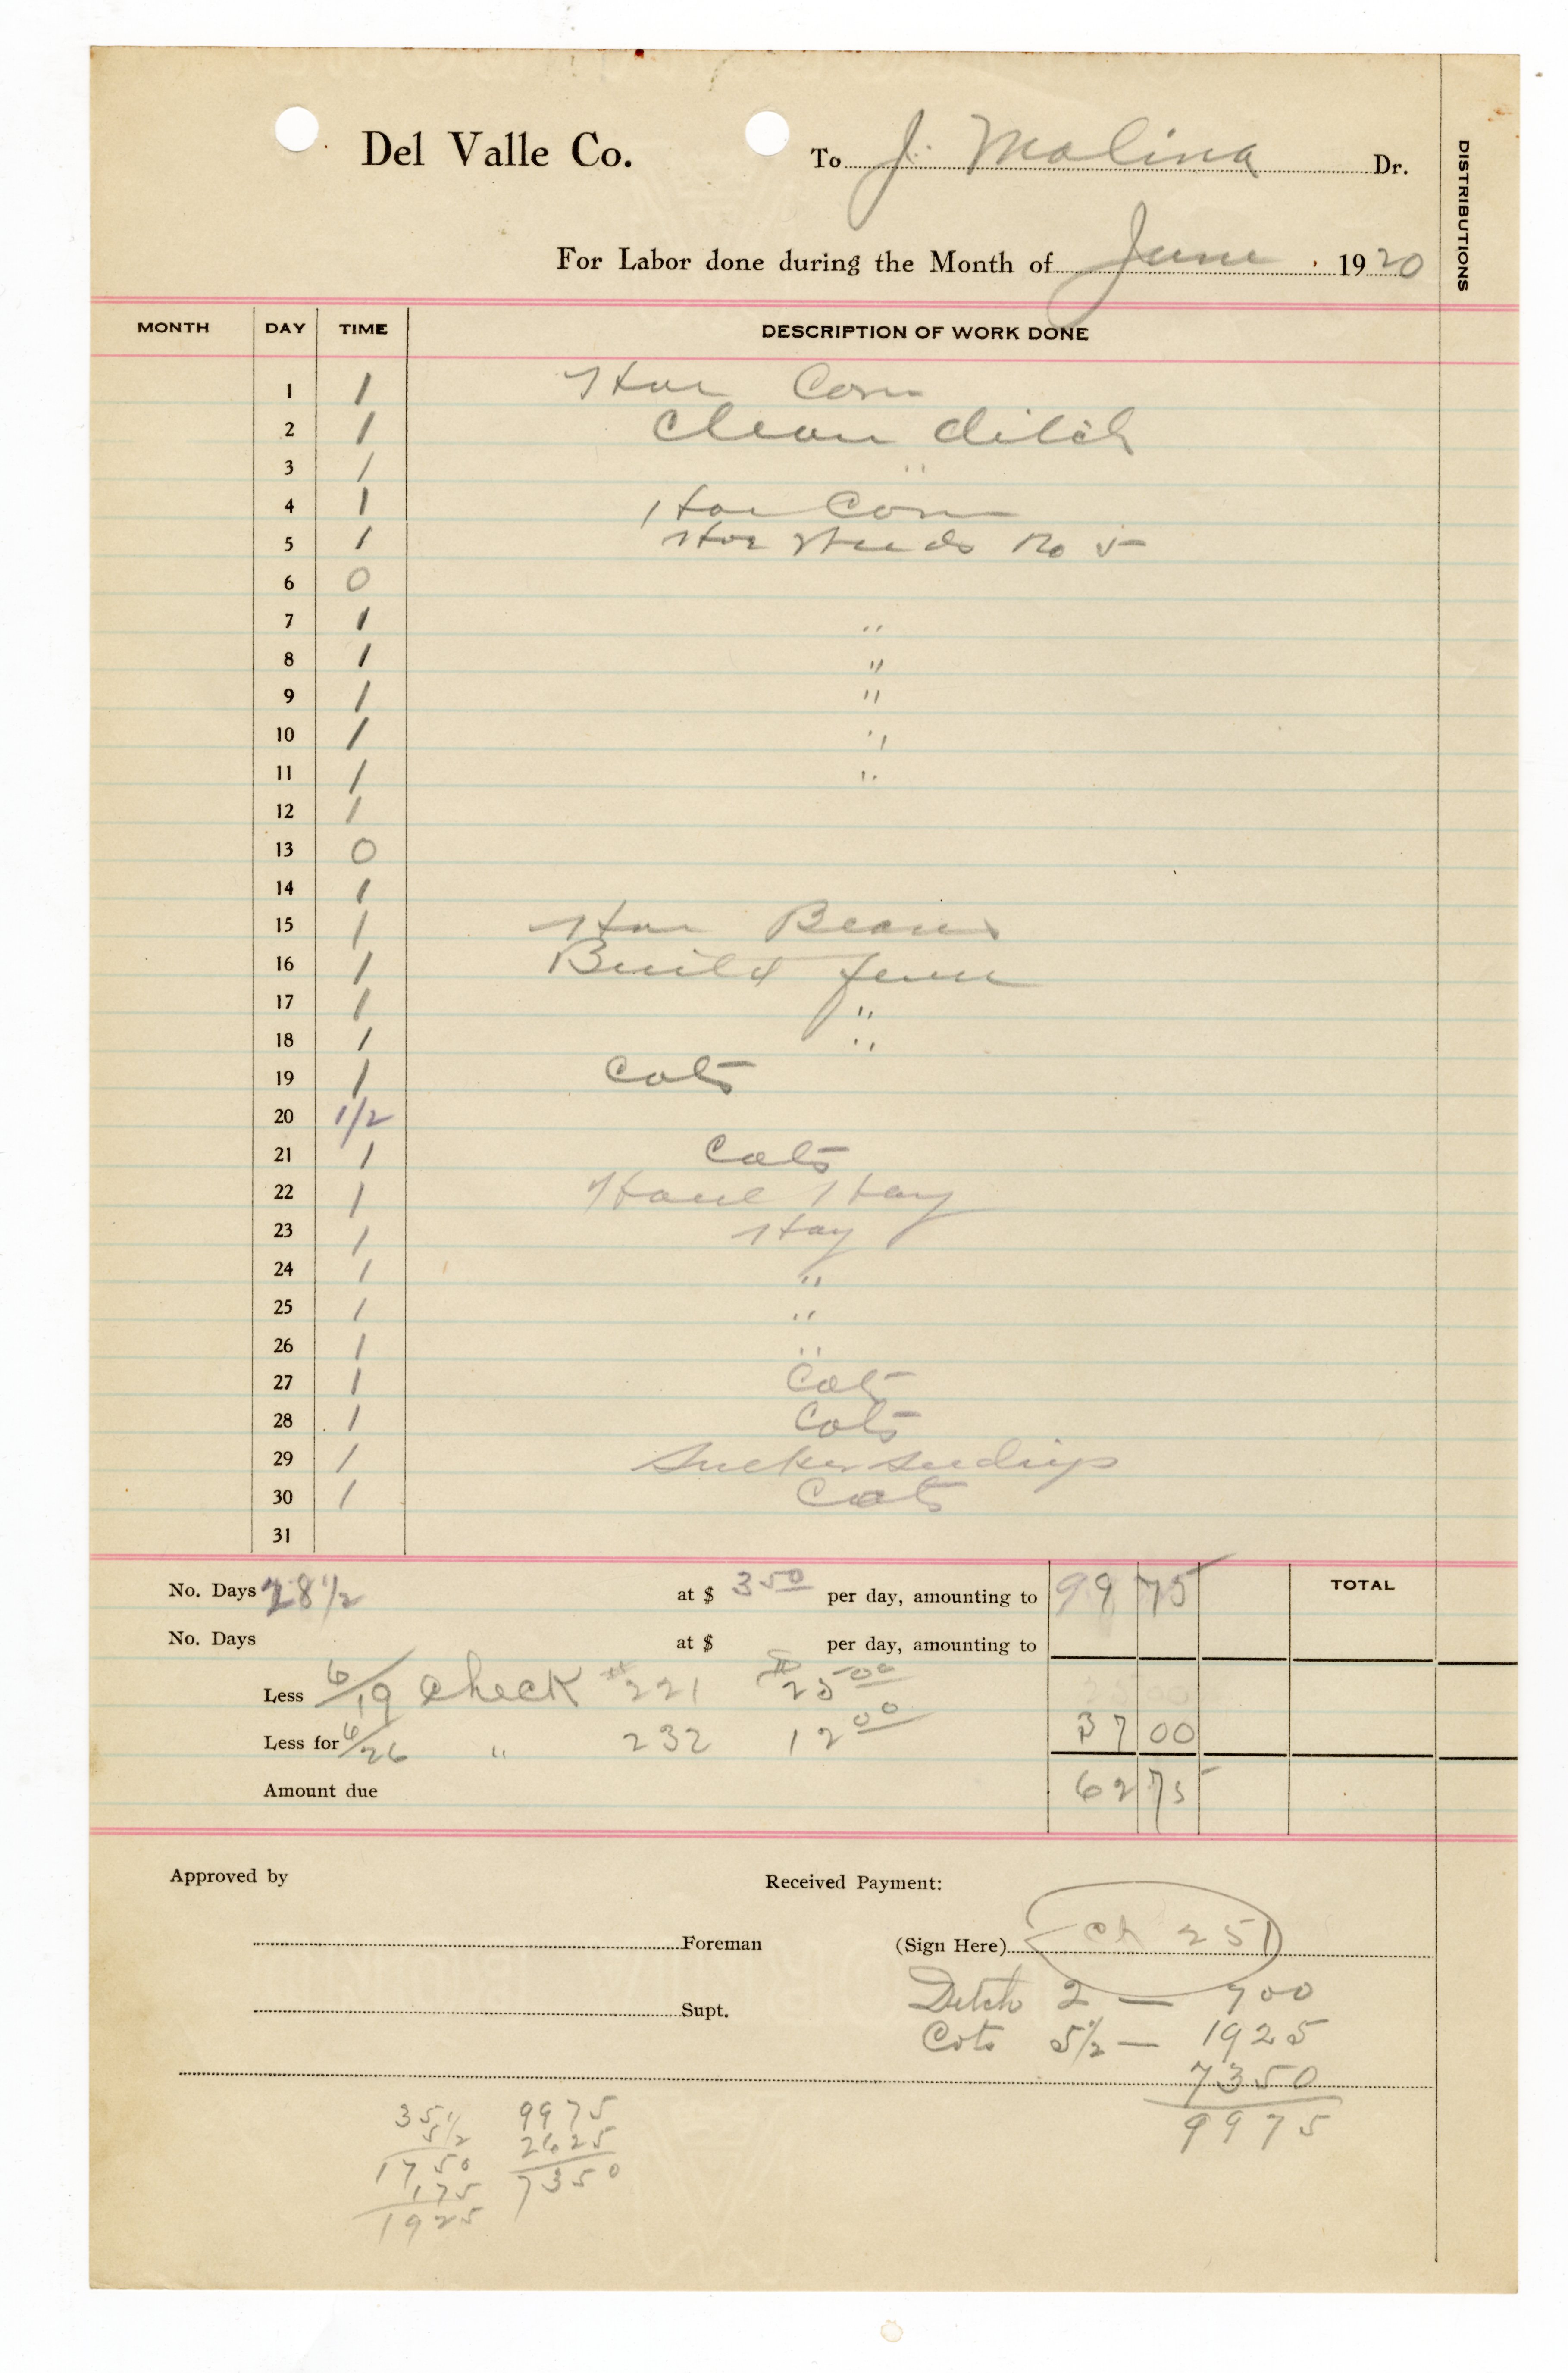 Del Valle Co. To J. Molina Dr.
DISTRIBUTIONS
For Labor done during the Month of June 1920
MONTH DAY TIME DESCRIPTION OF WORK DONE
1 1 Hoe Corn
2 1 Clean ditch
3 1 "
4 1 Hoe Corn
5 1 Hoe Weeds No 5
6 0
7 1 "
8 1 "
9 1 "
10 1 "
11 1 "
12 1
13 0
14 1
15 1 Hoe Beans
16 1 Build fence
17 1 "
18 1 "
19 1 Cots
20 1/2
21 1 Cots
22 1 Haul Hay
23 1 Hay
24 1 "
25 1 "
26 1 "
27 1 Cots
28 1 Cots
29 1 Sucker seedings
30 1 Cots
31
No. Days 28 1/2 at $ 3 50 per day, amounting to 99 75 TOTAL
No. Days at $ per day, amounting to
Less 6/19 Check # 221 $25 00
Less for 6/26 " 232 12 00 37 00
Amount due 62 75
Approved by Received Payment:
Foreman (Sign Here) Ck 251
Supt. Ditch 2 — 700
Cots 5 1/2 — 1925
7350
9975
35 9975
5 1/2 2625
1750 7350
175
1925